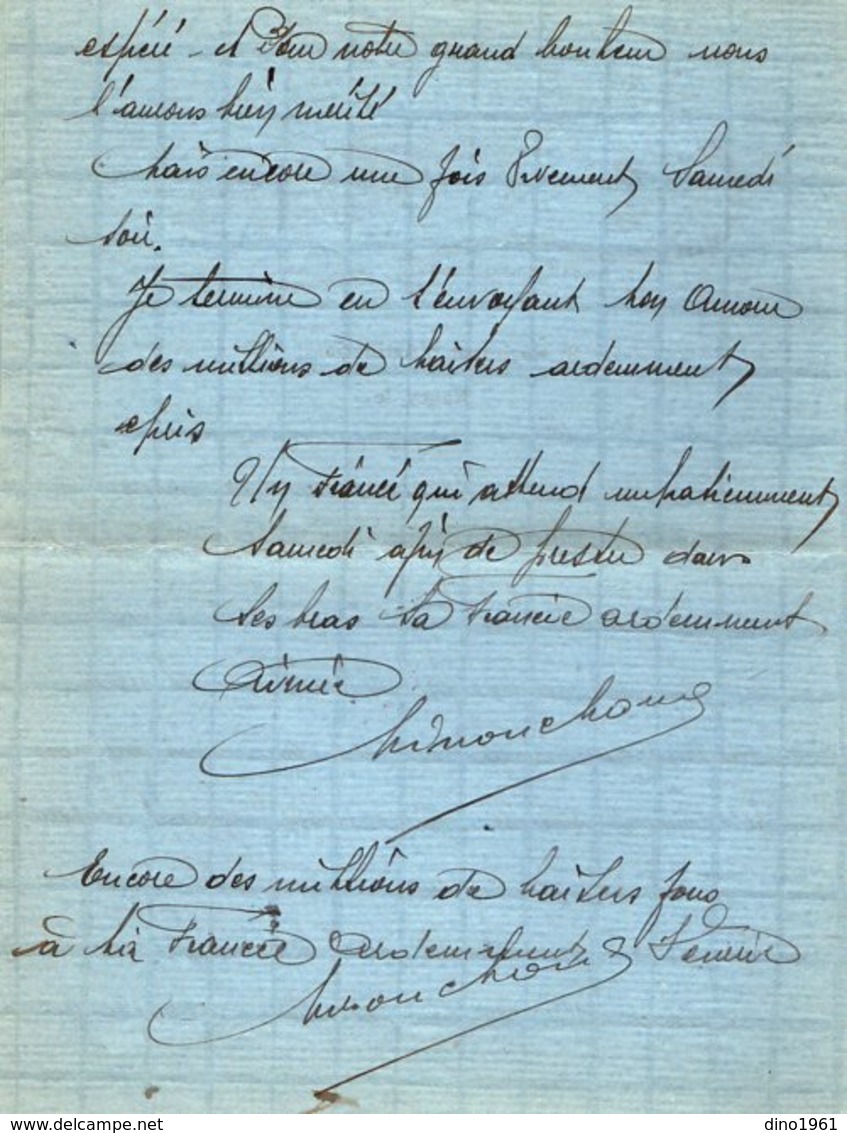 espéré - et Pour notre grand bonheur nous
l'aurons bien mérité
Mais encore une fois Vivement Samedi
soir.
Je termine en t'envoyant Mon Amour
des millions de baisers ardemment
épris
Un Fiancé qui attend impatiemment
Samedi afin de presser dans
Ses bras Sa Fiancée ardemment
Aimée
Encore des millions de baisers fous
à Ma Fiancée ardemment
delcampe.net
dino1961